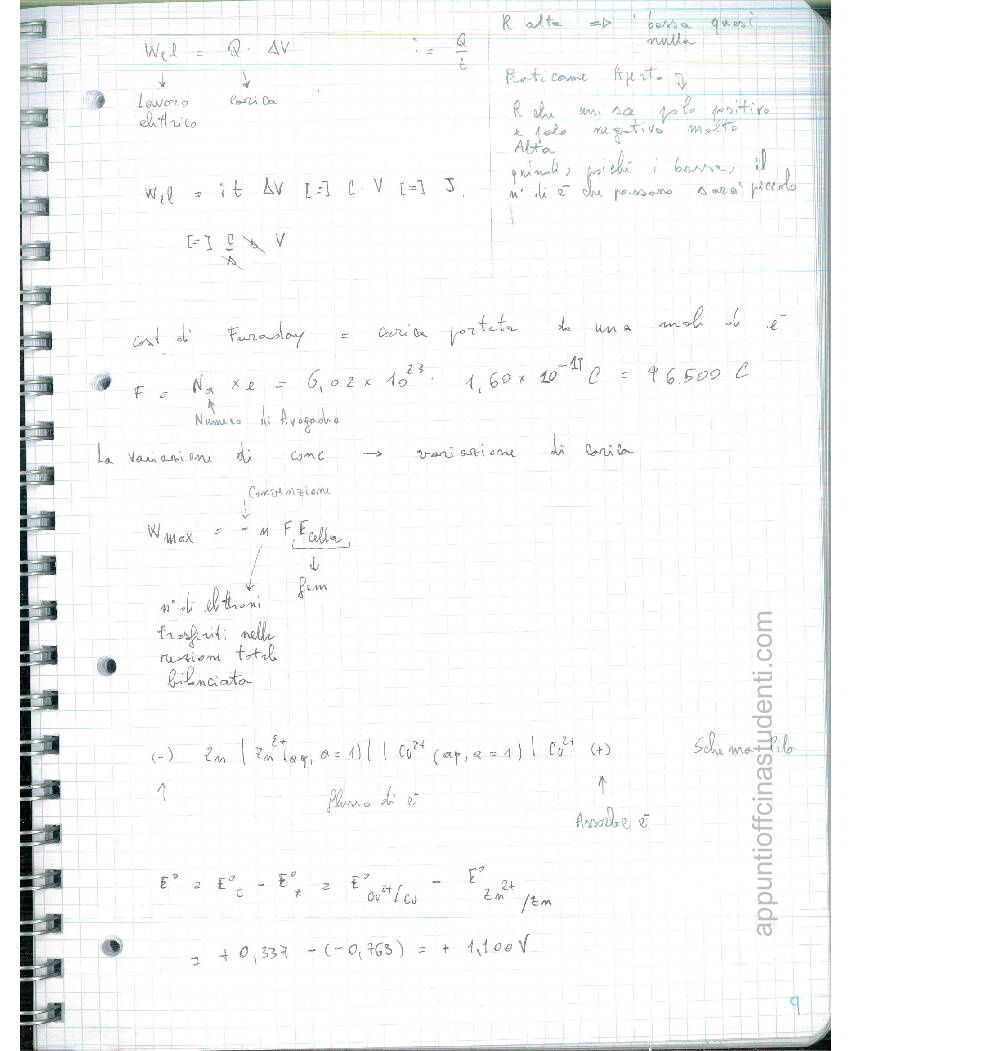 W el = Q · ΔV i = Q/t
↓ ↓
Lavoro carica
elettrico
R alta => i bassa quasi
nulla
Praticame Aperto
R che unisce polo positivo
e polo negativo molto
Alta
quindi, poiché i bassa, il
n° di e⁻ che passano sarà piccolo
W el = i t ΔV [=] C · V [=] J.
[=] C/s s V
cost di Faraday = carica portata da una mole di e⁻
F = N_A × e = 6,02 × 10²³ · 1,60 × 10⁻¹⁹ C = 96.500 C
Numero di Avogadro
La variazione di conc → variazione di carica
Convenzione
W max = - n F E cella
↓
fem
n° di elettroni
trasferiti nella
reazione totale
bilanciata
(-) Zn | Zn²⁺ (aq, a = 1) || Cu²⁺ (aq, a = 1) | Cu²⁺ (+) Schema Pila
↑ flusso di e⁻ ↑
Assorbe e⁻
E° = E°c - E°A = E° Cu²⁺/Cu - E° Zn²⁺/Zn
= + 0,337 - (-0,763) = + 1,100 V
9
appuntioffcinastudenti.com